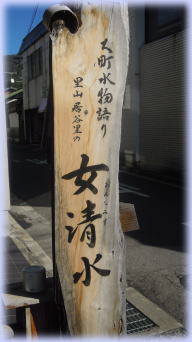 大町水物語り
里山 居谷里の
女清水